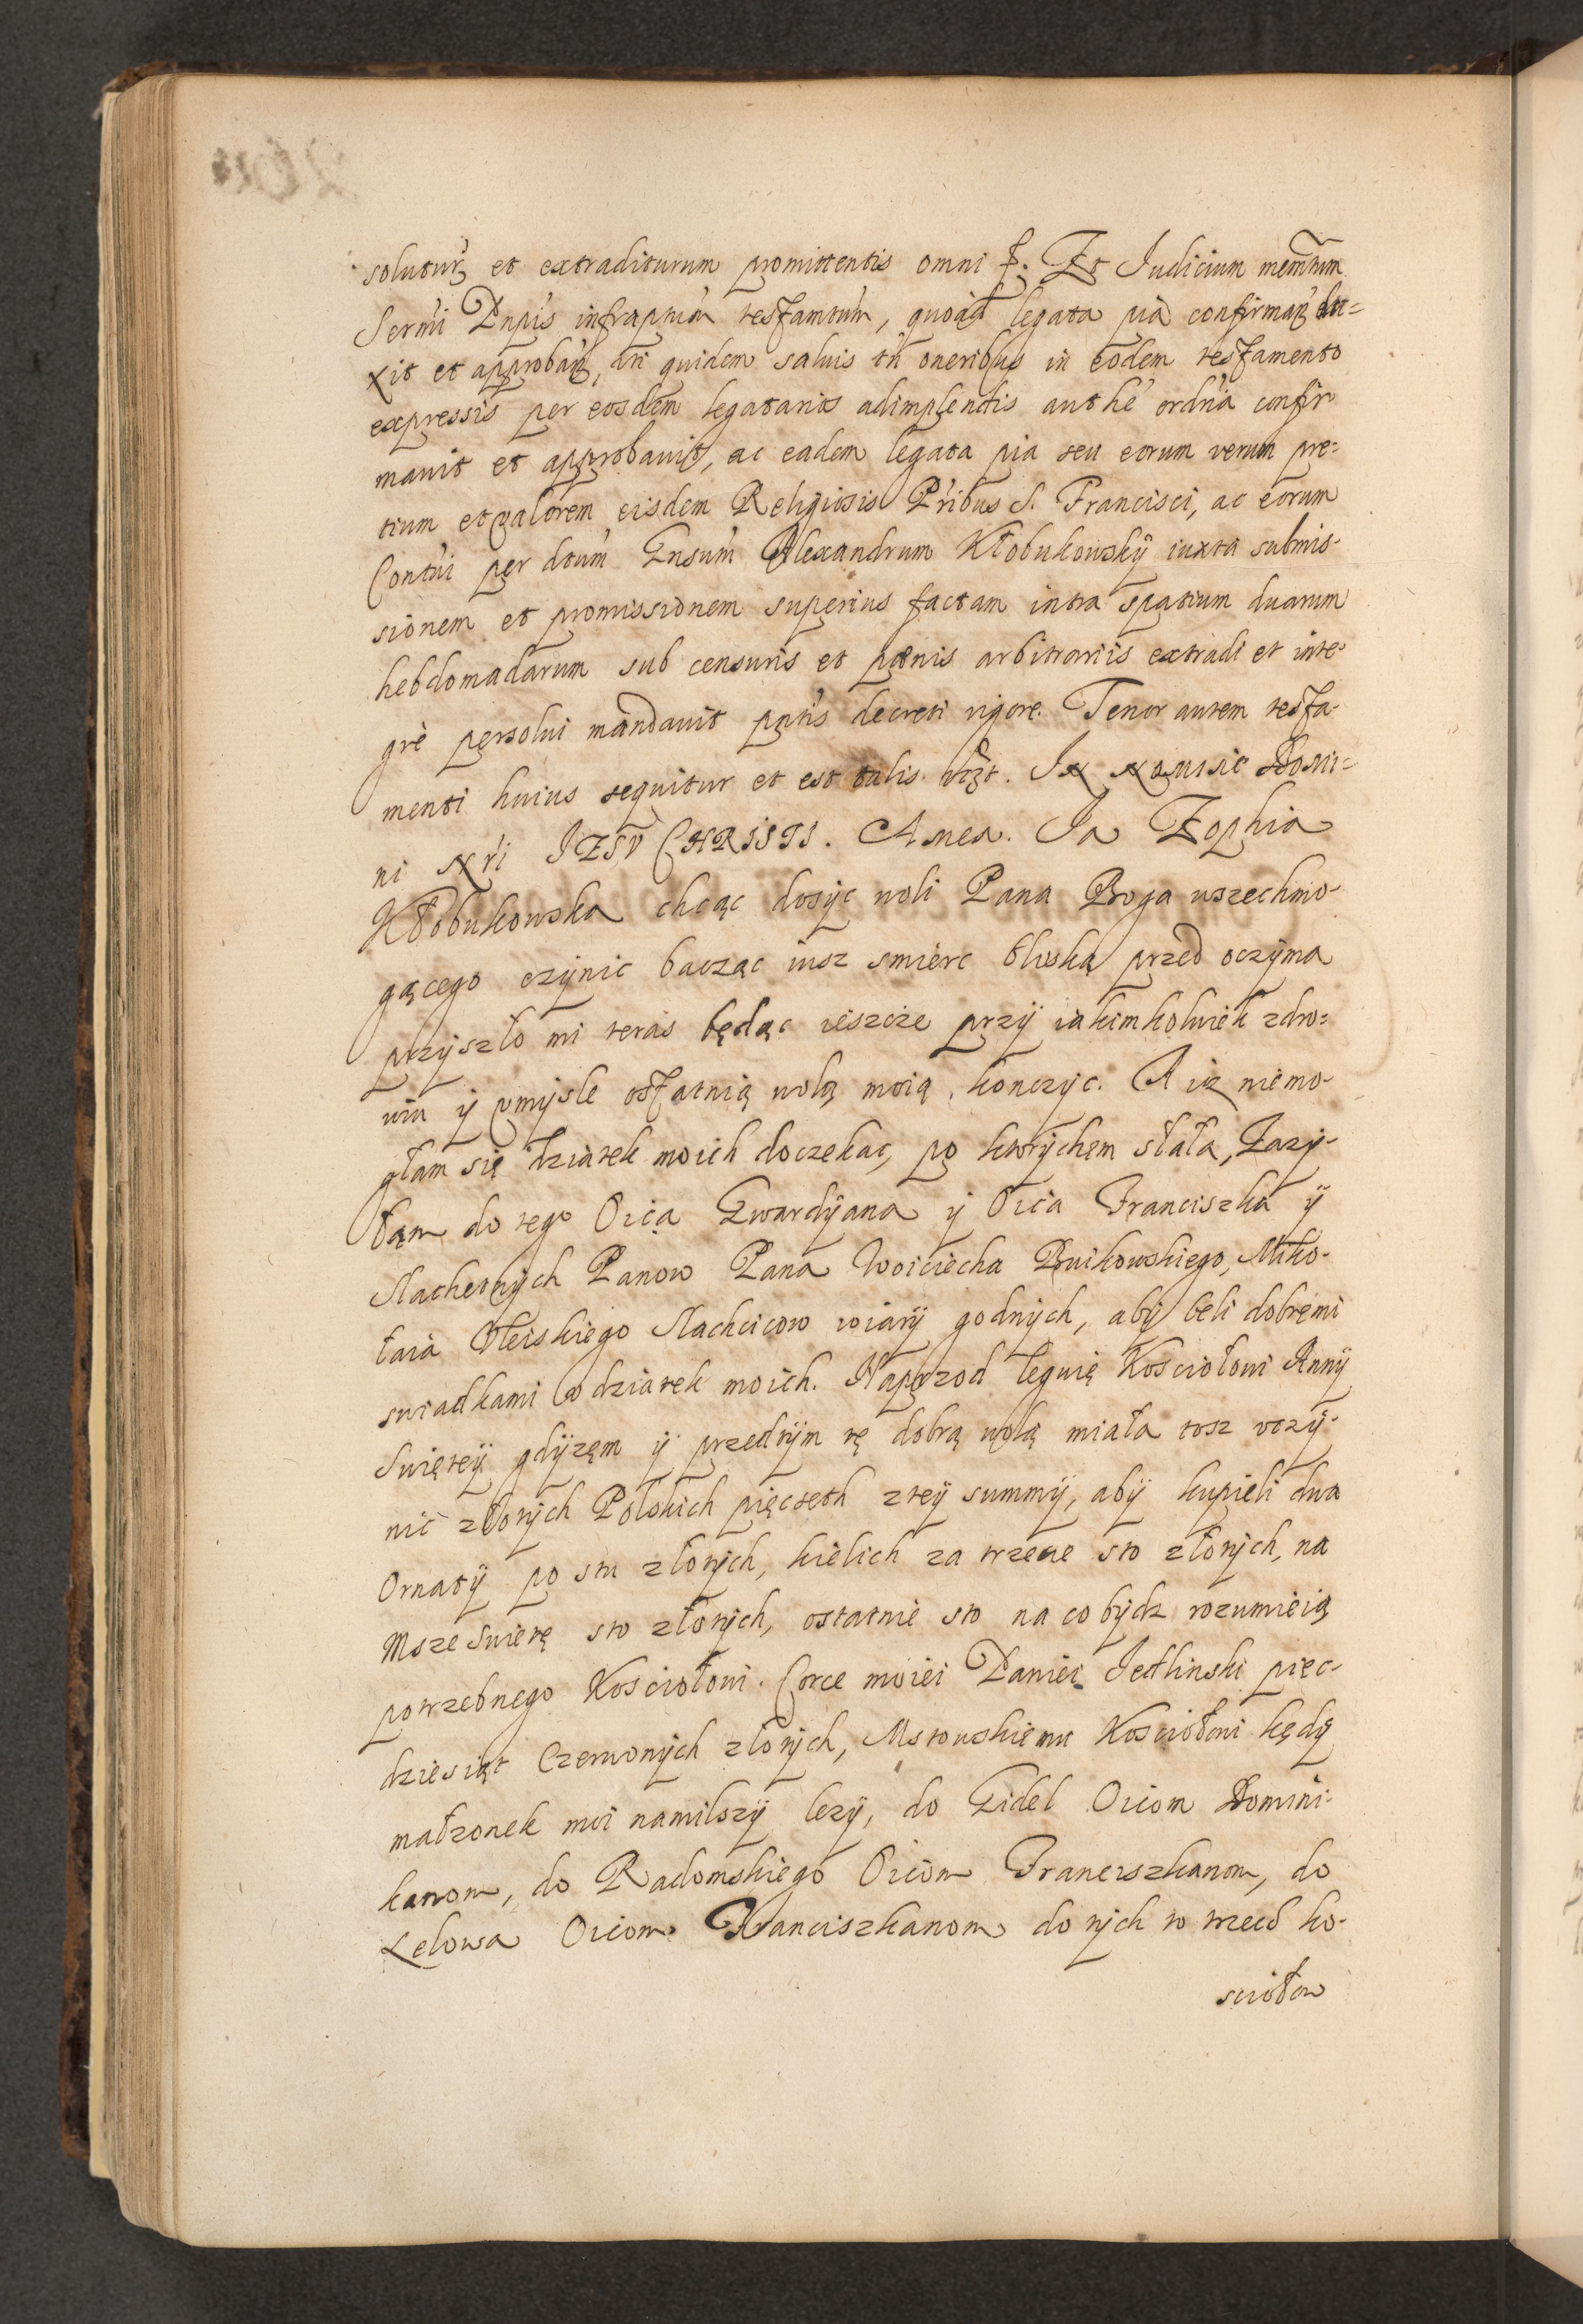 soluturum et extraditurum promittentis omni f. Et Judicium memtum
Sermi Dnpis infraptum testamtum, quoad legata pia confirmandum du=
xit et approbandum, uti quidem saluis tn oneribus in eodem testamento
expressis per eosdem legatarios adimplendis authe ordria confir
mauit et approbauit, ac eadem legata pia seu eorum verum pre=
tium et valorem eisdem Religiosis Pribus S. Francisci, ac eorum
Contui per dtum Gnsum Alexandrum Kłobukowskÿ iuxta submis-
sionem et promissionem superius factam intra spatium duarum
hebdomadarum sub censuris et pœnis arbitrariis extradi et inte-
grè persolui mandauit pntis decreti rigore. Tenor autem testa-
menti huius sequitur et est talis vizt. In nomine Domi=
ni Nri JESV CHRISTI. Amen. Ja Zophia
Kłobukowska chcąc dosÿc woli Pana Boga wszechmo-
gącego czÿnic bacząc iusz smierc bliską przed oczÿma
przÿszło mi teras będąc ieszcze przÿ iakimkolwiek zdro=
wiu ÿ vmÿsle ostatnią wolą moią konczÿc. A iz niemo-
głam się dziatek moich doczekac, po ktorÿchem słała, Zazÿ-
łam do tego Oica Gwardÿana ÿ Oica Franciszka ÿ
Slachetnÿch Panow Pana Woiciecha Buikowskiego, Miko-
łaia Oleiskiego Slachcicow wiarÿ godnÿch, abÿ beli dobremi
swiadkami v dziatek moich. Naprzod leguię Kosciołowi Annÿ
Swięteÿ gdÿzęm ÿ przedtÿm tę dobrą wolą miała tosz vczÿ-
nic złotÿch Polskich pięcseth z teÿ summÿ, abÿ kupieli dwa
Ornatÿ po stu złotÿch, kielich za trzecie sto złotÿch, na
Msze Swietę sto złotÿch, ostatnie sto na co bÿdz rozumieią
potrzebnego Kosciołowi. Corce moiei Paniei Jedlinski pięc-
dziesiąt Czerwonÿch złotÿch, Mstowskiemu Kosciołowi kędÿ
małzonek moi namilszÿ lezÿ, do Gidel Oicom Domini-
kanom, do Radomskiego Oicom Franciszkanom, do
Lelowa Oicom Franciszkanom do tÿch to trzech ko-
sciołow